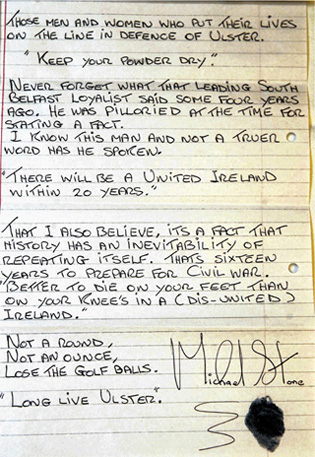 THOSE MEN AND WOMEN WHO PUT THEIR LIVES
ON THE LINE IN DEFENCE OF ULSTER.
"KEEP YOUR POWDER DRY."
NEVER FORGET WHAT THAT LEADING SOUTH
BELFAST LOYALIST SAID SOME FOUR YEARS
AGO. HE WAS PILLORIED AT THE TIME FOR
STATING A FACT.
I KNOW THIS MAN AND NOT A TRUER
WORD HAS HE SPOKEN.
"THERE WILL BE A UNITED IRELAND
WITHIN 20 YEARS."
THAT I ALSO BELIEVE, ITS A FACT THAT
HISTORY HAS AN INEVITABILITY OF
REPEATING ITSELF. THATS SIXTEEN
YEARS TO PREPARE FOR CIVIL WAR.
"BETTER TO DIE ON YOUR FEET THAN
ON YOUR KNEE'S IN A (DIS-UNITED)
IRELAND."
NOT A ROUND,
NOT AN OUNCE,
LOSE THE GOLF BALLS.
"LONG LIVE ULSTER".
Michael Stone